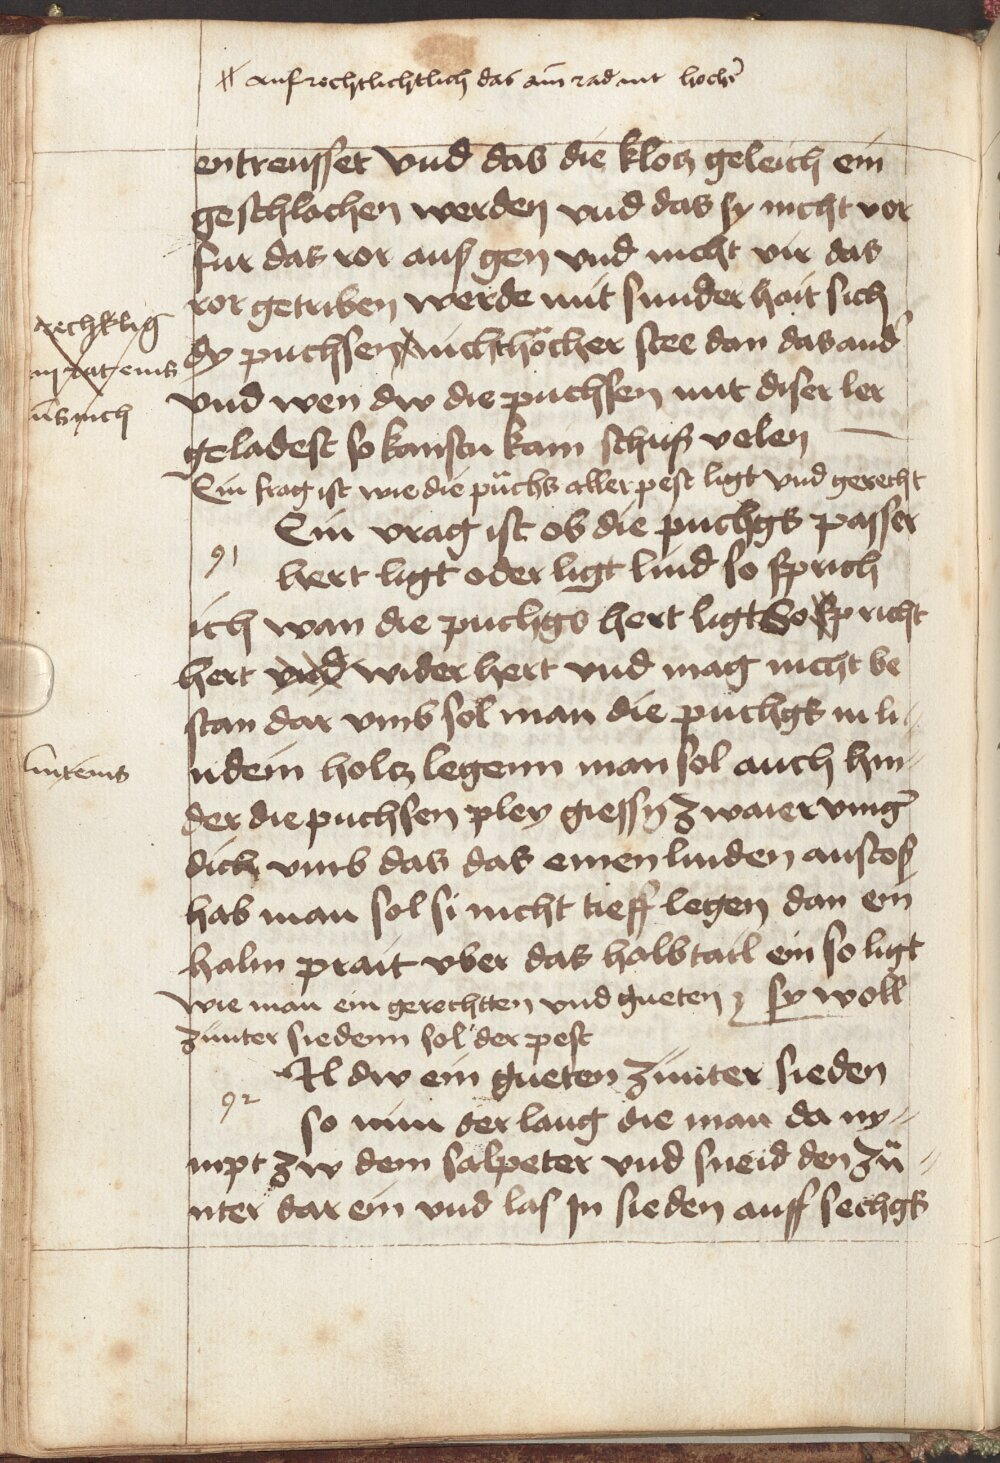 # aufrechtlichtlich das ain rad nit hocher
entreusset vnd das die klocz geleich ein
geschlachen werden vnd das sy nicht vor
fur das ror auß gen vnd nicht vir das
ror getriben werde mit sunderhait sich
dy puchsen # nicht höcher stee dan das and
vnd wen dw die puchsen mit diser ler
geladest so kanstu kain schuß velen
Ein frag ist wie die püchs aller pest ligt vnd gerecht
91 Ein vrag ist ob die puchgs passer
hert ligt oder ligt lind so sprich
ich wan die puchgs hert ligt So spricht
hert vnd wider hert vnd mag nicht be
stan dar vmb sol man die puchgs in li
ndem holcz legenn man sol auch hin
der die puchsen pley giessn zwaier ving
dick vmb das das einen linden anstoß
hab man sol si nicht tieff legen dan ein
halm prait vber das halbtail ein so ligt
sy woll
wie man ein gerechtten vnd gueten
zünter siedenn sol der pest
92 Il dw ein gueten zünter sieden
so nim der laug die man da ny
mpt zw dem salpeter vnd sneid den zü
nter dar ein vnd las in sieden auff sechgs